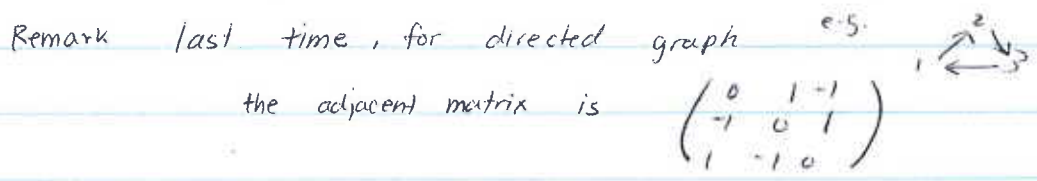 Remark last time, for directed graph e.g. 1 2 3
the adjacent matrix is
0 1 -1
-1 0 1
1 -1 0